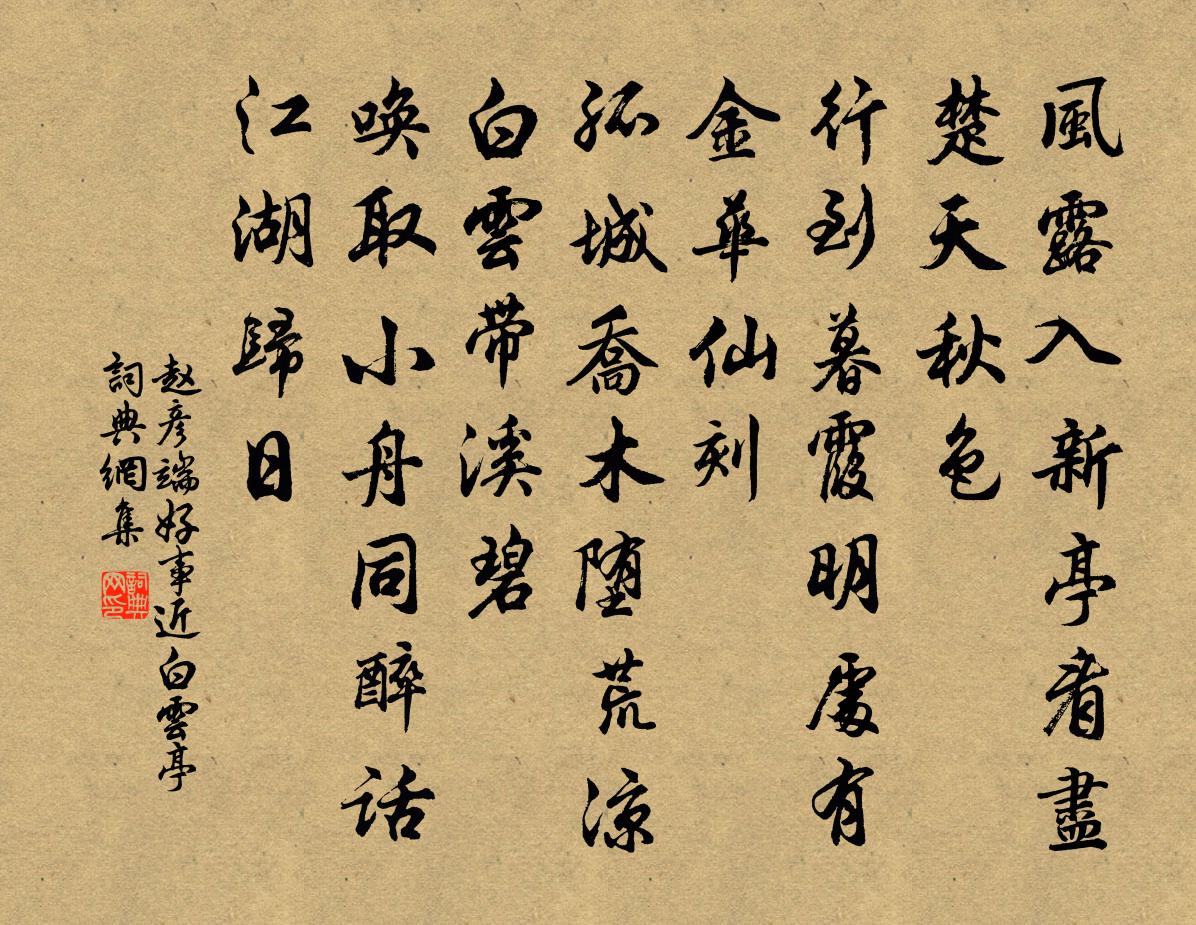 風露入新亭看盡
楚天秋色
行到暮霞明處有
金華仙刻
孤城喬木墮荒涼
白雲帶溪碧
喚取小舟同醉話
江湖歸日
赵彦端好事近白雲亭
詞典網集
詞典
网印